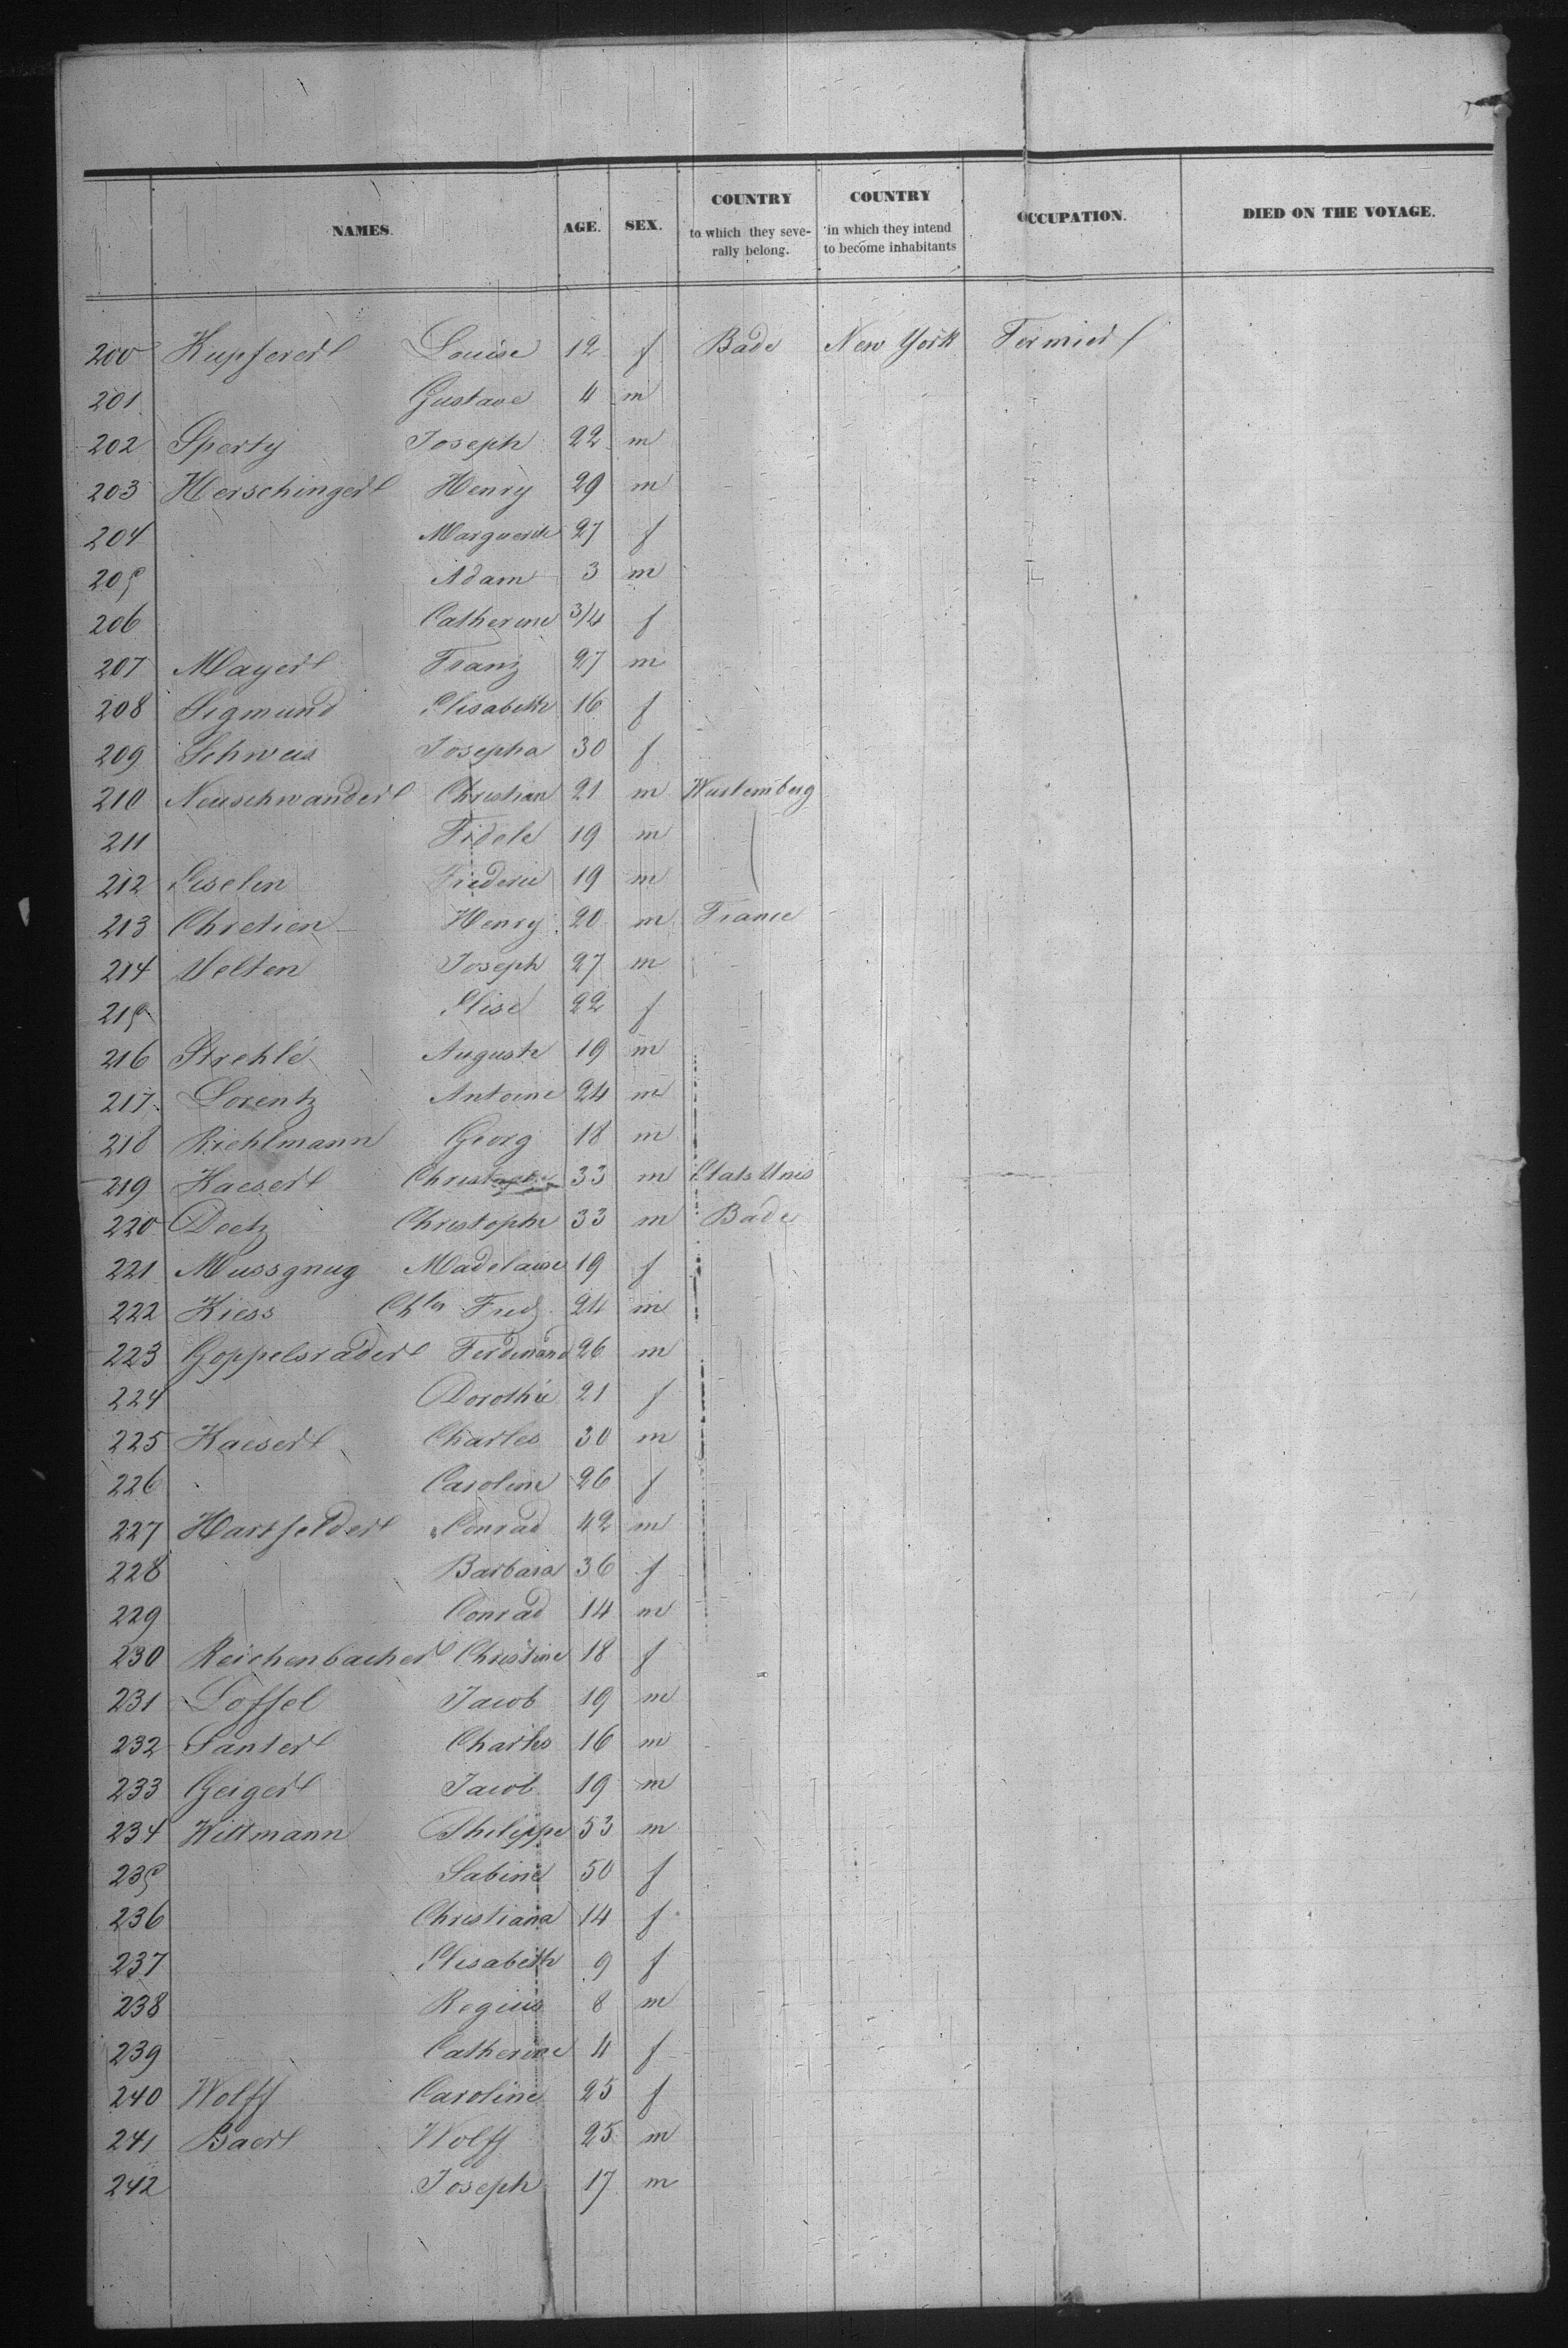 NAMES. AGE. SEX. COUNTRY to which they severally belong. COUNTRY in which they intend to become inhabitants OCCUPATION. DIED ON THE VOYAGE.
200 Kupferer Louise 12 f Bade New York Fermier
201 Gustave 4 m
202 Sperty Joseph 22 m
203 Herschinger Henry 29 m
204 Marguerite 27 f
205 Adam 3 m
206 Catherine 3/4 f
207 Mayer Franz 27 m
208 Sigmund Elisabeth 16 f
209 Schweis Josepha 30 f
210 Neuschwander Christian 21 m Wurtemberg
211 Fidele 19 m
212 Eiselin Frederic 19 m
213 Chretien Henry 20 m France
214 Velten Joseph 27 m
215 Elise 22 f
216 Strehlé Auguste 19 m
217 Lorentz Antoine 24 m
218 Riehlmann Georg 18 m
219 Kaeser 33 m Etats Unis
220 Deetz Christophe 33 m Bade
221 Mussgnug Madelaine 19 f
222 Kiess Chtn Fred 24 m
223 Goppelsrader Ferdinand 26 m
224 Dorothée 21 f
225 Kaeser Charles 30 m
226 Caroline 26 f
227 Hartfelder Conrad 42 m
228 Barbara 36 f
229 Conrad 14 m
230 Reichenbacher Christine 18 f
231 Loffel Jacob 19 m
232 Santer Charles 16 m
233 Geiger Jacob 19 m
234 Wittmann Philippe 53 m
235 Sabine 50 f
236 Christiana 14 f
237 Elisabeth 9 f
238 Regius 8 m
239 Catherine 4 f
240 Wolff Caroline 25 f
241 Baer Wolff 25 m
242 Joseph 17 m